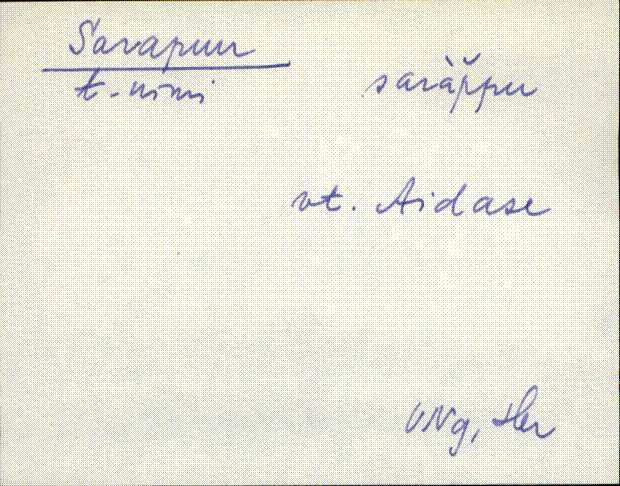 Sarapuu
t. nimi
saràp̆pu
vt. Aidase
VNg, Hln